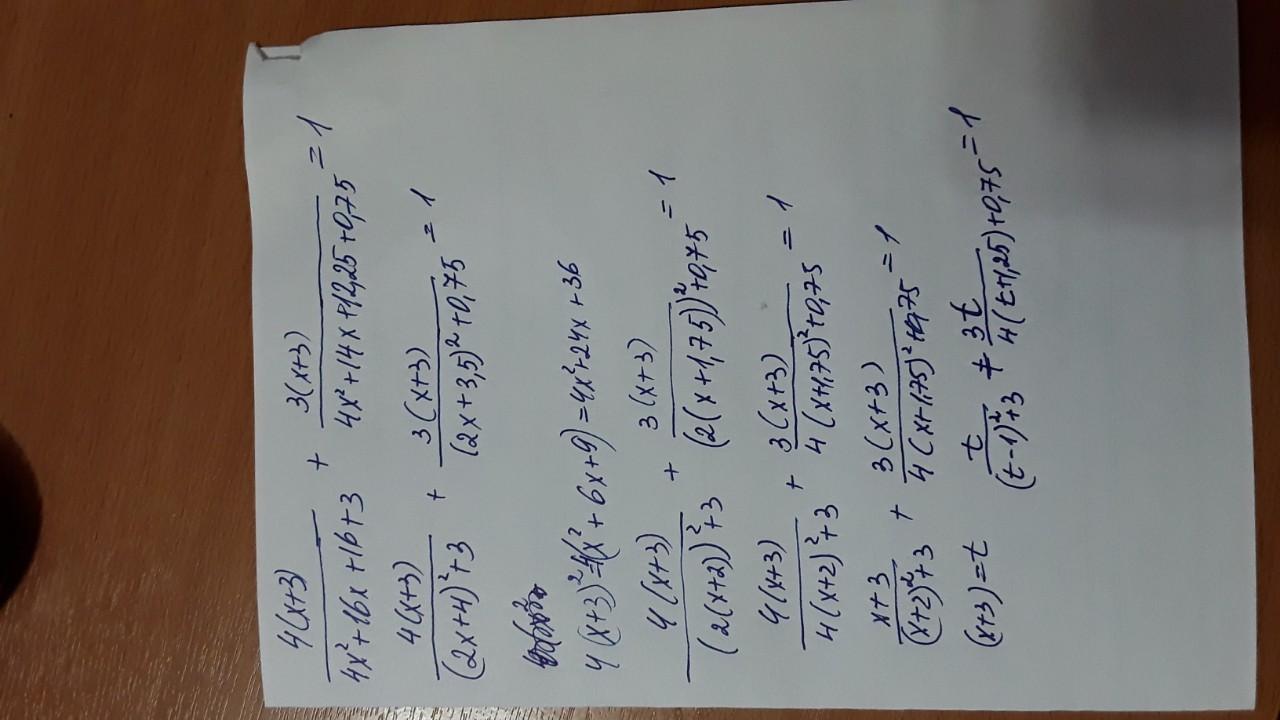 4(x+3)/(4x²+16x+16+3) + 3(x+3)/(4x²+14x+12,25+0,75) = 1
4(x+3)/((2x+4)²+3) + 3(x+3)/((2x+3,5)²+0,75) = 1
4(x+3)²=4(x²+6x+9)=4x²+24x+36
4(x+3)/((2(x+2))²+3) + 3(x+3)/((2(x+1,75))²+0,75) = 1
4(x+3)/(4(x+2)²+3) + 3(x+3)/(4(x+1,75)²+0,75) = 1
x+3/((x+2)²+3) + 3(x+3)/(4(x+1,75)²+0,75) = 1
(x+3)=t t/((t-1)²+3) ≠ 3t/(4(t+1,25)+0,75) = 1